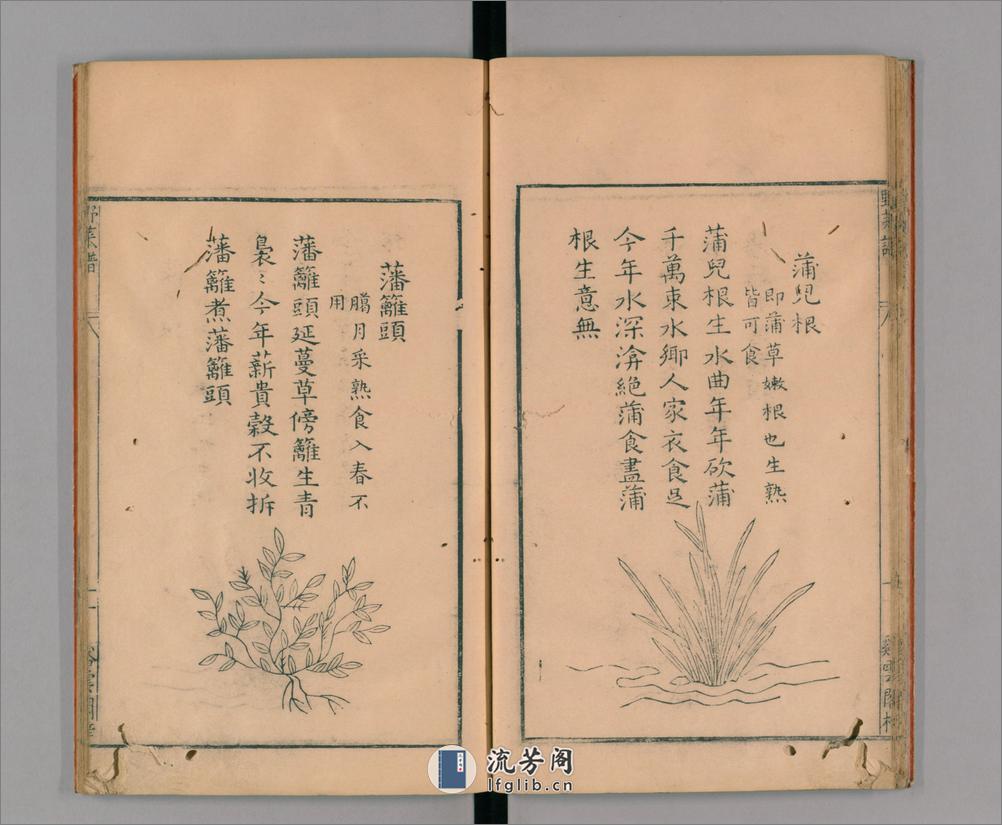 蒲兒根
即蒲草嫩根也生熟
皆可食
蒲兒根生水曲年年砍蒲
千萬束水鄉人家衣食足
今年水深渰絶蒲食盡蒲
根生意無
藩籬頭
臈月采熟食入春不
用
藩籬頭延蔓草傍籬生青
裊〻今年薪貴穀不收拆
藩籬煮藩籬頭
野菜譜
流芳阁
lfglib.cn